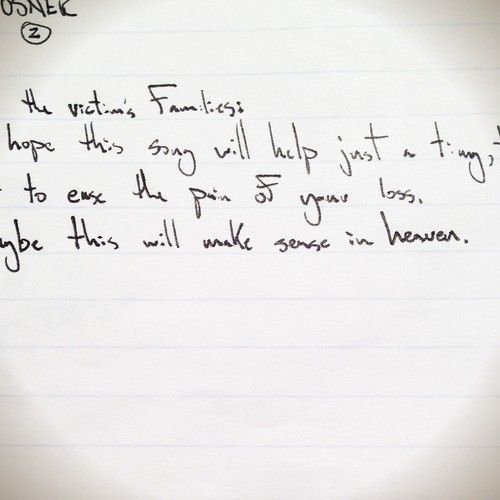 OSNEK
2
the victim's Families:
hope this song will help just a tiny, t
to ease the pain of your loss.
ybe this will make sense in heaven.